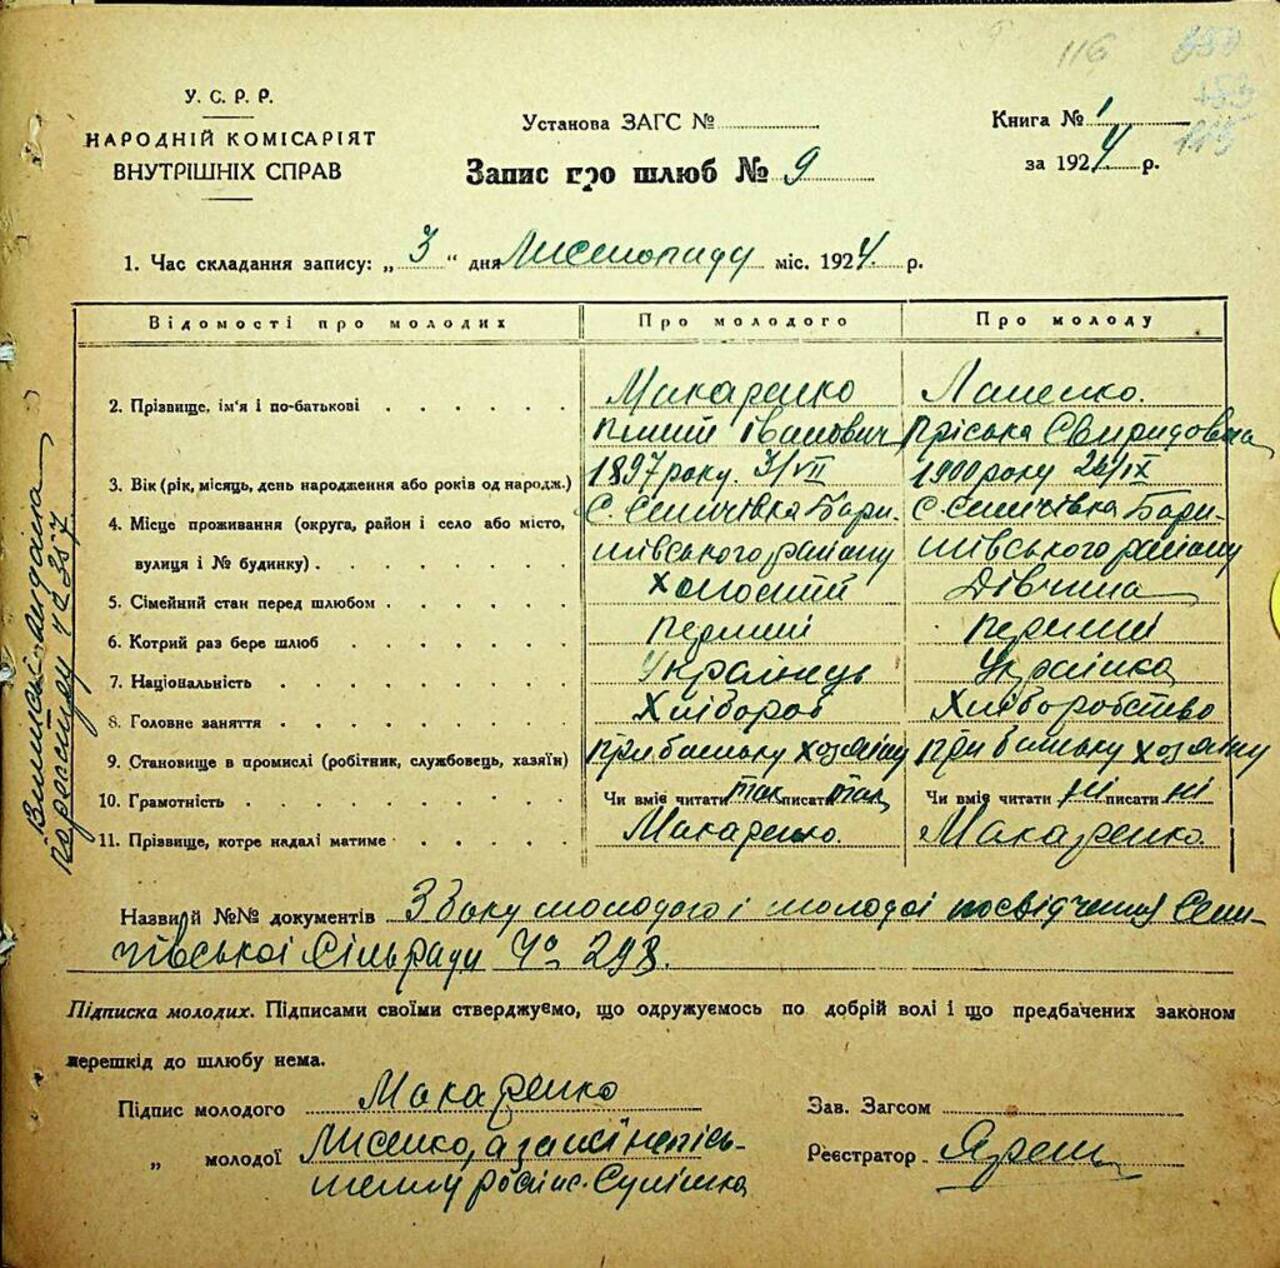 116
У. С. Р. Р.
НАРОДНІЙ КОМІСАРІЯТ
ВНУТРІШНІХ СПРАВ
Установа ЗАГС №
Запис про шлюб № 9
Книга № 1
за 1924 р.
1. Час складання запису: „ 3 “ дня Листопаду міс. 1924. р.
Відомості про молодих Про молодого Про молоду
2. Прізвище, ім'я і по-батькові Макаренко
Іванович Пріська Свиридовна
3. Вік (рік, місяць, день народження або років од народж.) 1897 року. 3/VII 1900 року 26/IX
4. Місце проживання (округа, район і село або місто, С. Сеничівка Бари- С. Сеничівка Бари-
вулиця і № будинку) шівського району шівського району
5. Сімейний стан перед шлюбом Холостий Дівчина
6. Котрий раз бере шлюб перший перший
7. Національність Українець Українка
8. Головне заняття Хлібороб Хліборобство
9. Становище в промислі (робітник, службовець, хазяїн) при батьку хозяїну при батьку хозяїну
10. Грамотність Чи вміє читати так писати так Чи вміє читати ні писати ні
11. Прізвище, котре надалі матиме Макаренко. Макаренко.
Назви й №№ документів З боку молодого і молодої посвідчення Сени-
чівської Сільради № 298.
Підписка молодих. Підписами своїми стверджуємо, що одружуємось по добрій волі і що предбачених законом
перешкід до шлюбу нема.
Підпис молодого Макаренко
Зав. Загсом
„ молодої а за неї непись-
менну
Реєстратор